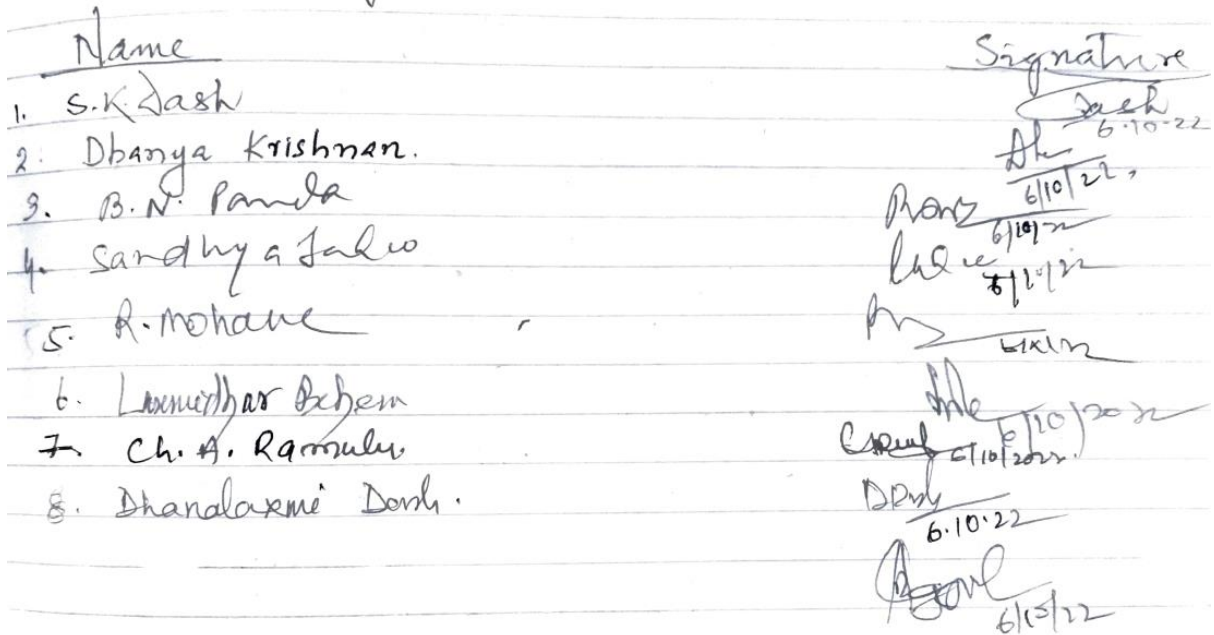 Name Signature
1. S.K. Dash Dash
6.10.22
2. Dhanya Krishnan.
6/10/22,
3. B.N. Panda
6/10/22
4. Sandhya
6/10/22
5. R. Mohane
6. Laxmidhar Behera
6/10/2022
7. Ch. A. Ramulu.
6/10/2022.
8. Dhanalaxmi Dash. DDash
6.10.22
6/10/22